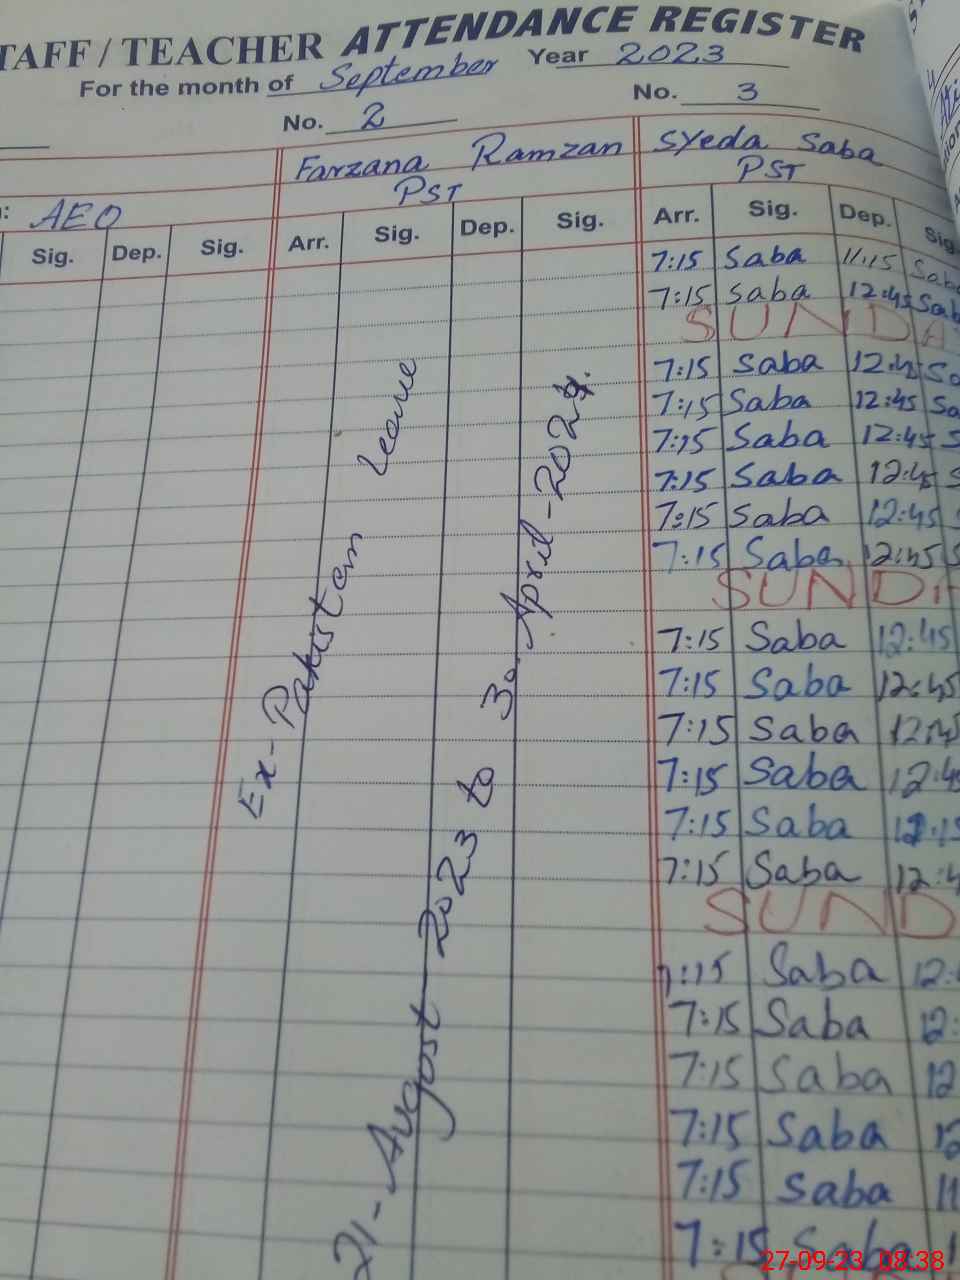 TAFF / TEACHER ATTENDANCE REGISTER
For the month of September Year 2023
No. 2 No. 3
Farzana Ramzan Syeda Saba
PST PST
: AEO
Sig. Dep. Sig. Arr. Sig. Dep. Sig. Arr. Sig. Dep. Sig
7:15 Saba 11:15 Saba
7:15 Saba 12:45 Sab
SUNDA
7:15 Saba 12:45 Sa
7:15 Saba 12:45 Sa
7:15 Saba 12:45 S
7:15 Saba 12:45 S
7:15 Saba 12:45
7:15 Saba 12:45 S
SUNDA
7:15 Saba 12:45
7:15 Saba 12:45
7:15 Saba 12:45
7:15 Saba 12:4
7:15 Saba 12:15
7:15 Saba 12:4
SUND
7:15 Saba 12:
7:15 Saba 12:
7:15 Saba 12
7:15 Saba 12
7:15 Saba 11
7:15 Saba
Ex-Pakistan leave
21-Augost-2023 to 30-April-2024.
27-09-23 08:38